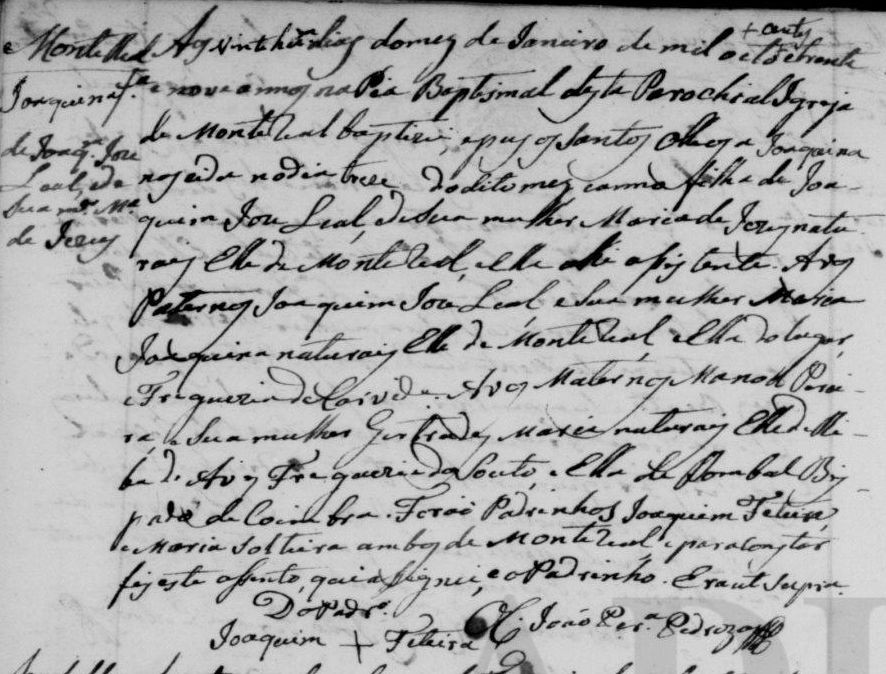 Monte Real
Joaquina f.ª
de Joaq.m Jose
Leal, e de
sua m.er M.ª
de Jezus
+ centos
Aos vinte hũ dias do mez de Janeiro de mil oito e trenta
e nove annos na Pia Baptismal desta Parochial Igreja
de Monte Real baptizei, e puz os Santos Oleos a Joaquina
nascida no dia treze do dito mez e anno filha de Joa-
quim Joze Leal, e de sua mulher Maria de Jezus natu-
raes Elle de Monte Real, e ella assistente. Avos
Paternos Joaquim Joze Leal, e sua mulher Maria
Joaquina naturaes Elle de Monte Real, e Ella do lugar,
e Freguezia de Carvide. Avos Maternos Manoel Perei-
ra, e sua mulher Gertrudes Maria naturaes Elle de Ri-
ba d'Aves Freguezia do Souto, e Ella de Pombal Bis-
pado de Coimbra. Forão Padrinhos Joaquim Feteira,
e Maria solteira ambos de Monte Real, e para constar
fiz este assento, que assignei, e o Padrinho. Era ut supra.
Do Padr.º
Joaquim + Feteira
O C. João Per.ª Pedroza